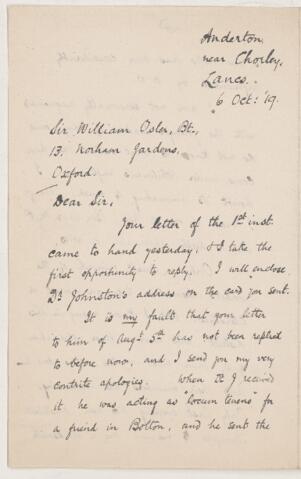 Anderton,
near Chorley,
Lancs.
6 Oct: '19.
Sir William Osler, Bt.,
13. Norham Gardens,
Oxford.
Dear Sir,
Your letter of the 1st inst.
came to hand yesterday, & I take the
first opportunity to reply. I will enclose
Dr Johnston's address on the card you sent.
It is my fault that your letter
to him of Augt 5th has not been replied
to before now, and I send you my very
contrite apologies. When Dr J received
it he was acting as "locum tenens" for
a friend in Bolton, and he sent the